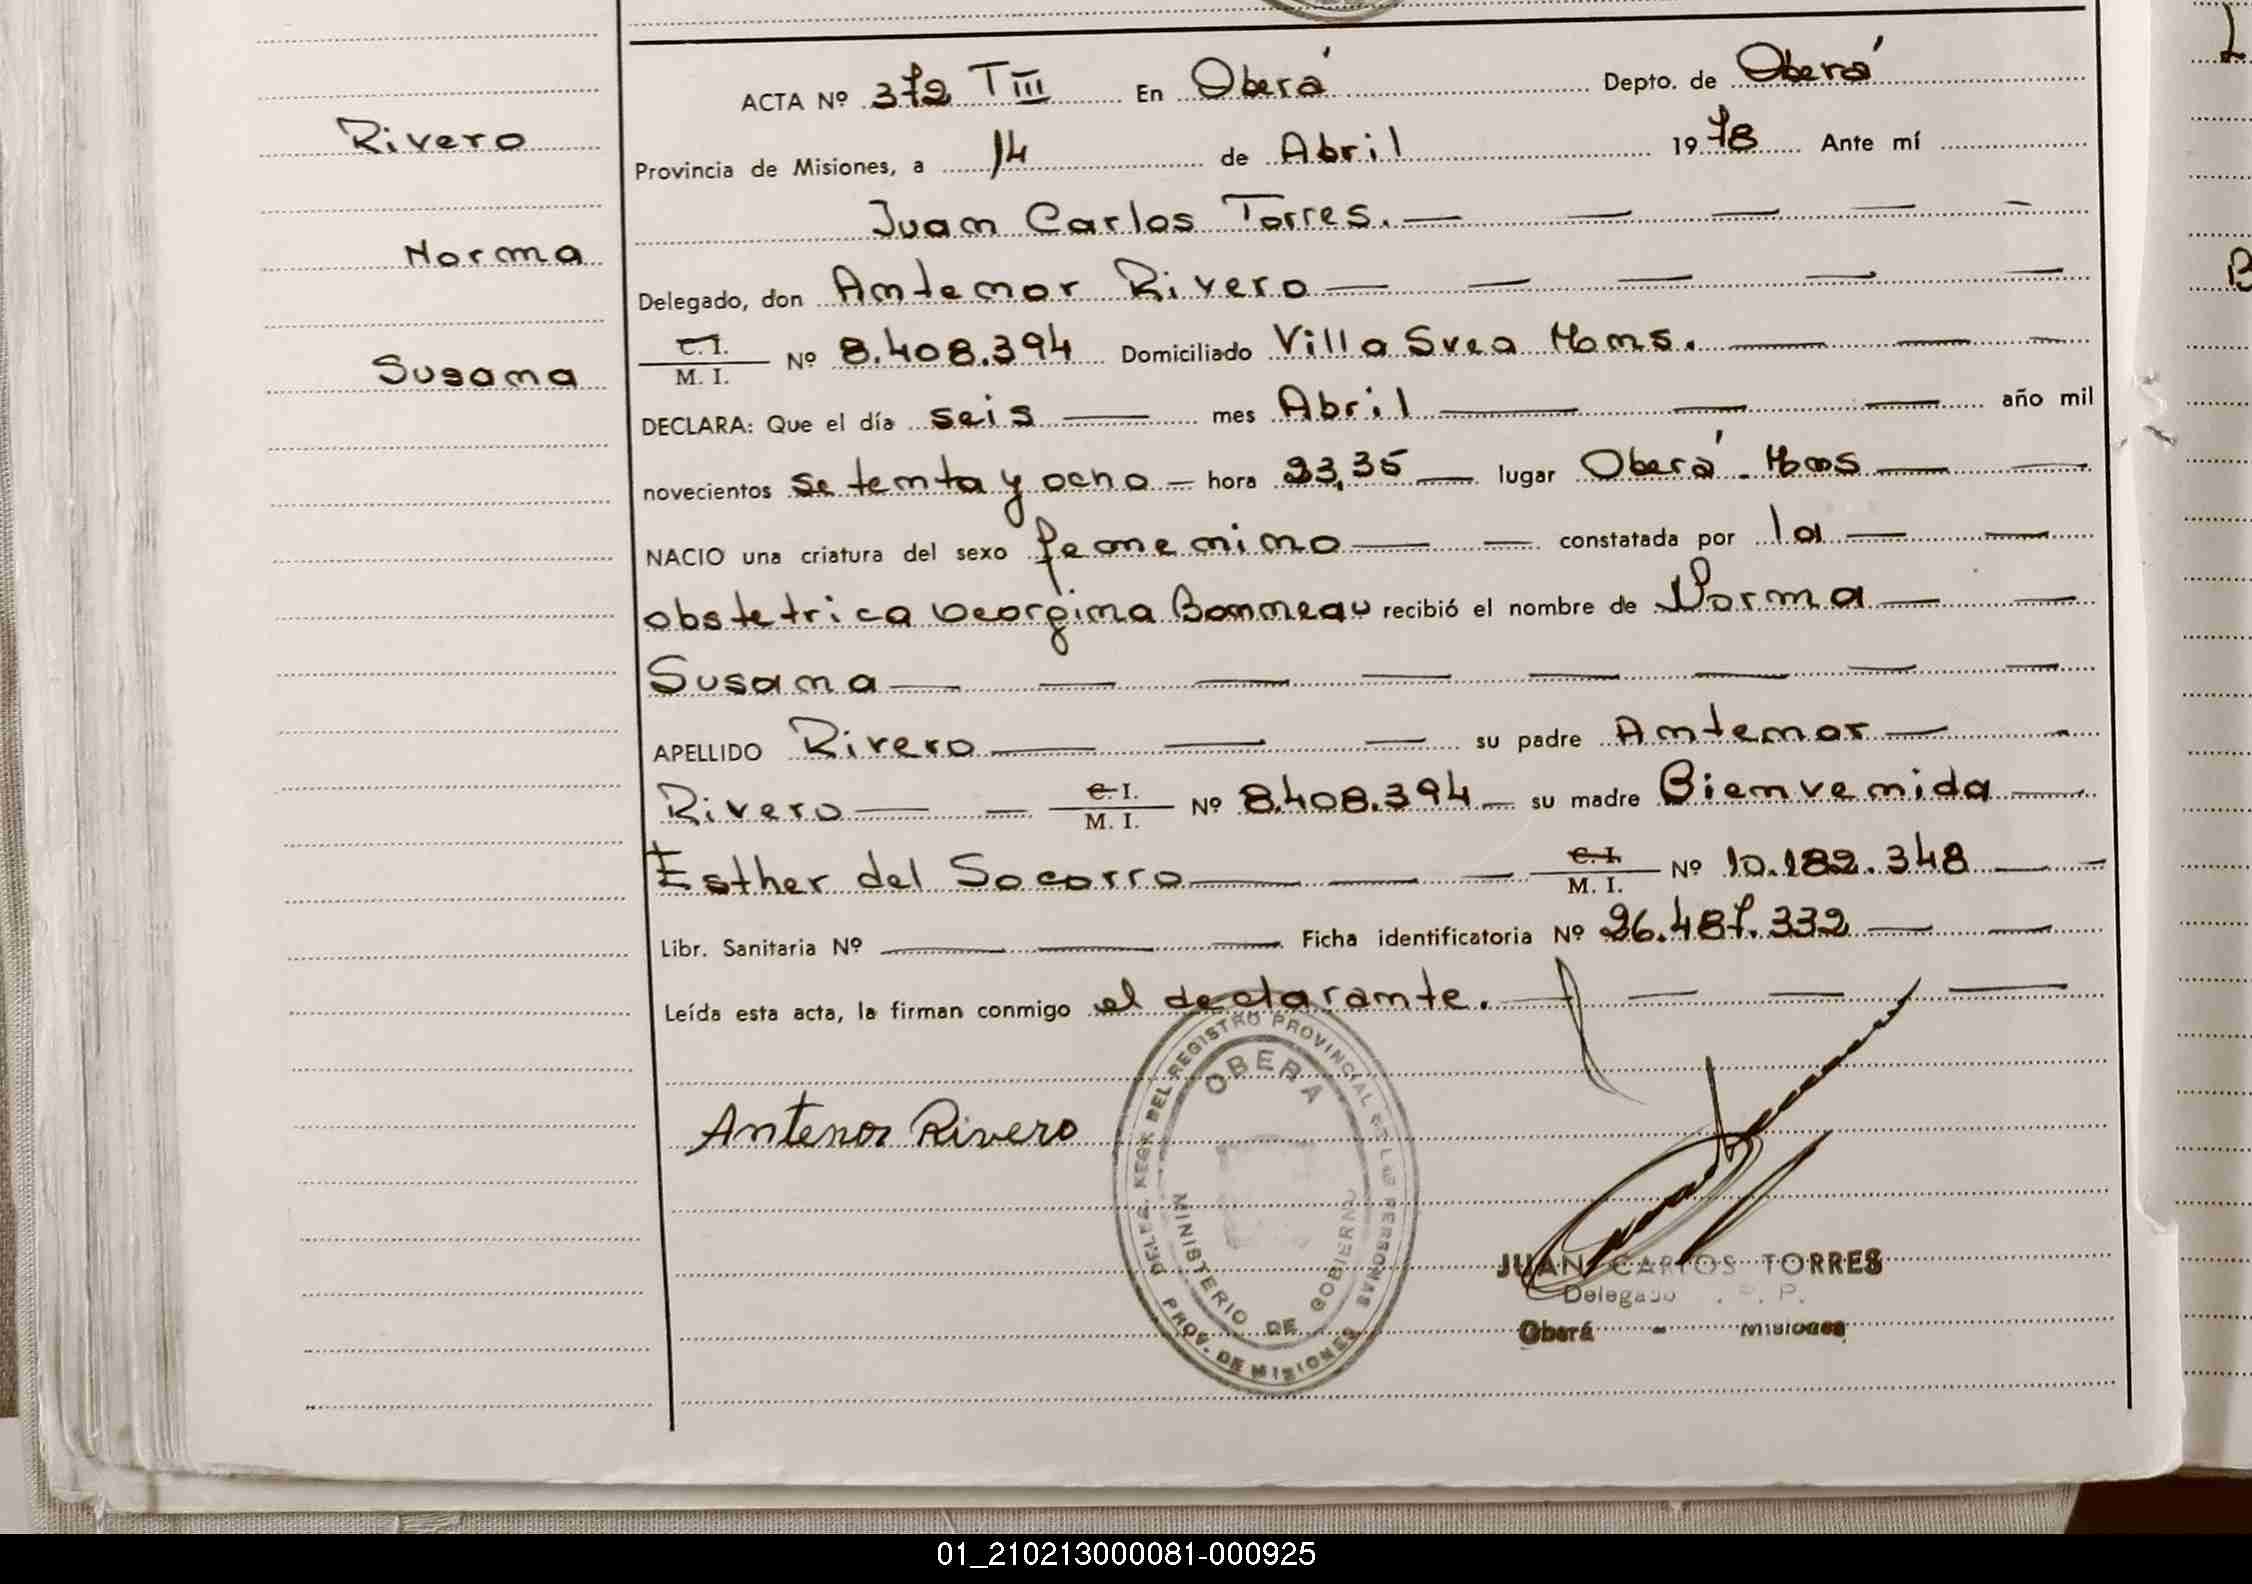 Rivero
Norma
Susana
ACTA Nº 372 T III En Oberá Depto. de Oberá
Provincia de Misiones, a 14 de Abril 1978 Ante mí
Juan Carlos Torres.
Delegado, don Antenor Rivero
C. I.
M. I. Nº 8.408.394 Domiciliado Villa Svea Mnes.
DECLARA: Que el día seis mes Abril año mil
novecientos setenta y ocho hora 23,35 lugar Oberá - Mnes
NACIO una criatura del sexo femenino constatada por la
obstetrica Georgina Bonneau recibió el nombre de Norma
Susana
APELLIDO Rivero su padre Antenor
Rivero C. I.
M. I. Nº 8.408.394 su madre Bienvenida
Esther del Socorro C. I.
M. I. Nº 10.182.348
Libr. Sanitaria Nº Ficha identificatoria Nº 26.487.332
Leída esta acta, la firman conmigo el declarante.
Antenor Rivero
DELEG. REGL DEL REGISTRO PROVINCIAL DE LAS PERSONAS
OBERA
MINISTERIO DE GOBIERNO
PROV. DE MISIONES
JUAN CARLOS TORRES
Delegado P. P.
Oberá - Misiones
01_210213000081-000925